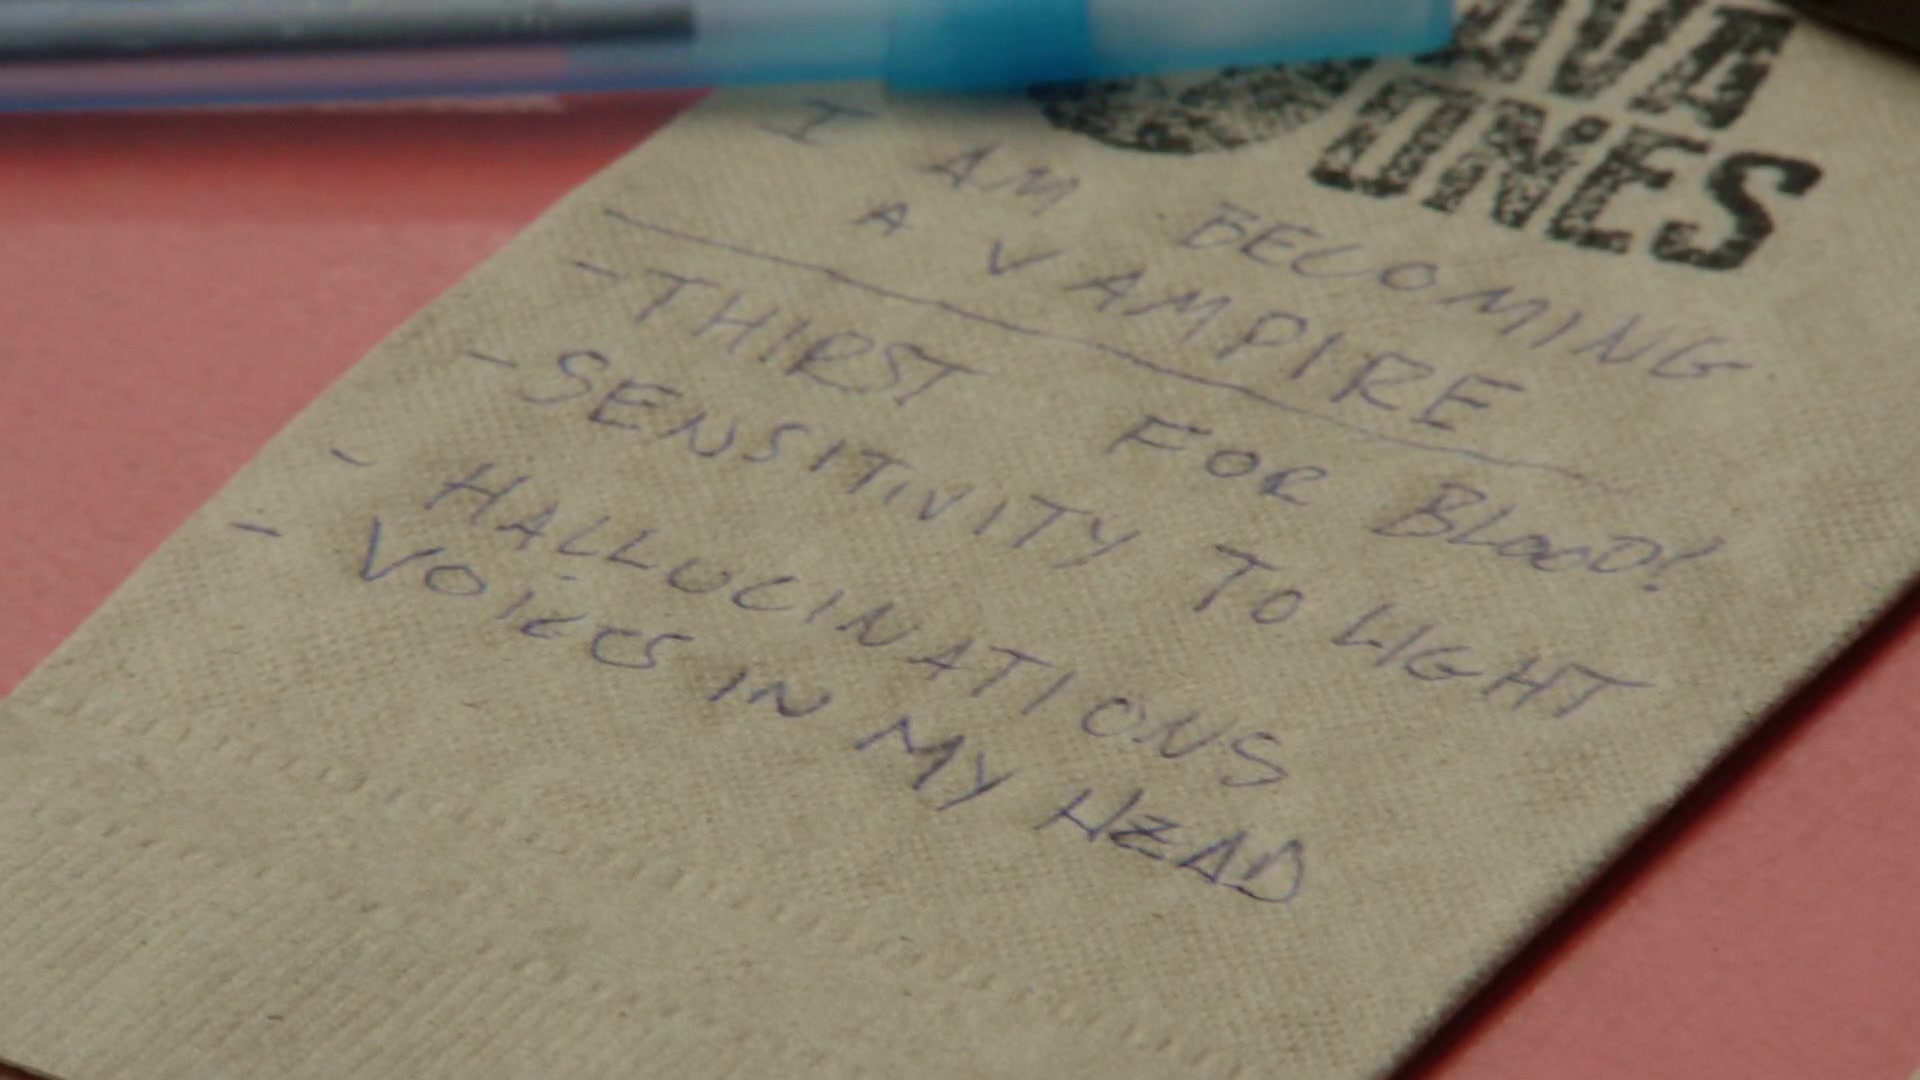 AVA
ONES
I AM BECOMING
A VAMPIRE
- THIRST FOR BLOOD!
- SENSITIVITY TO LIGHT
- HALLUCINATIONS
- VOICES IN MY HEAD